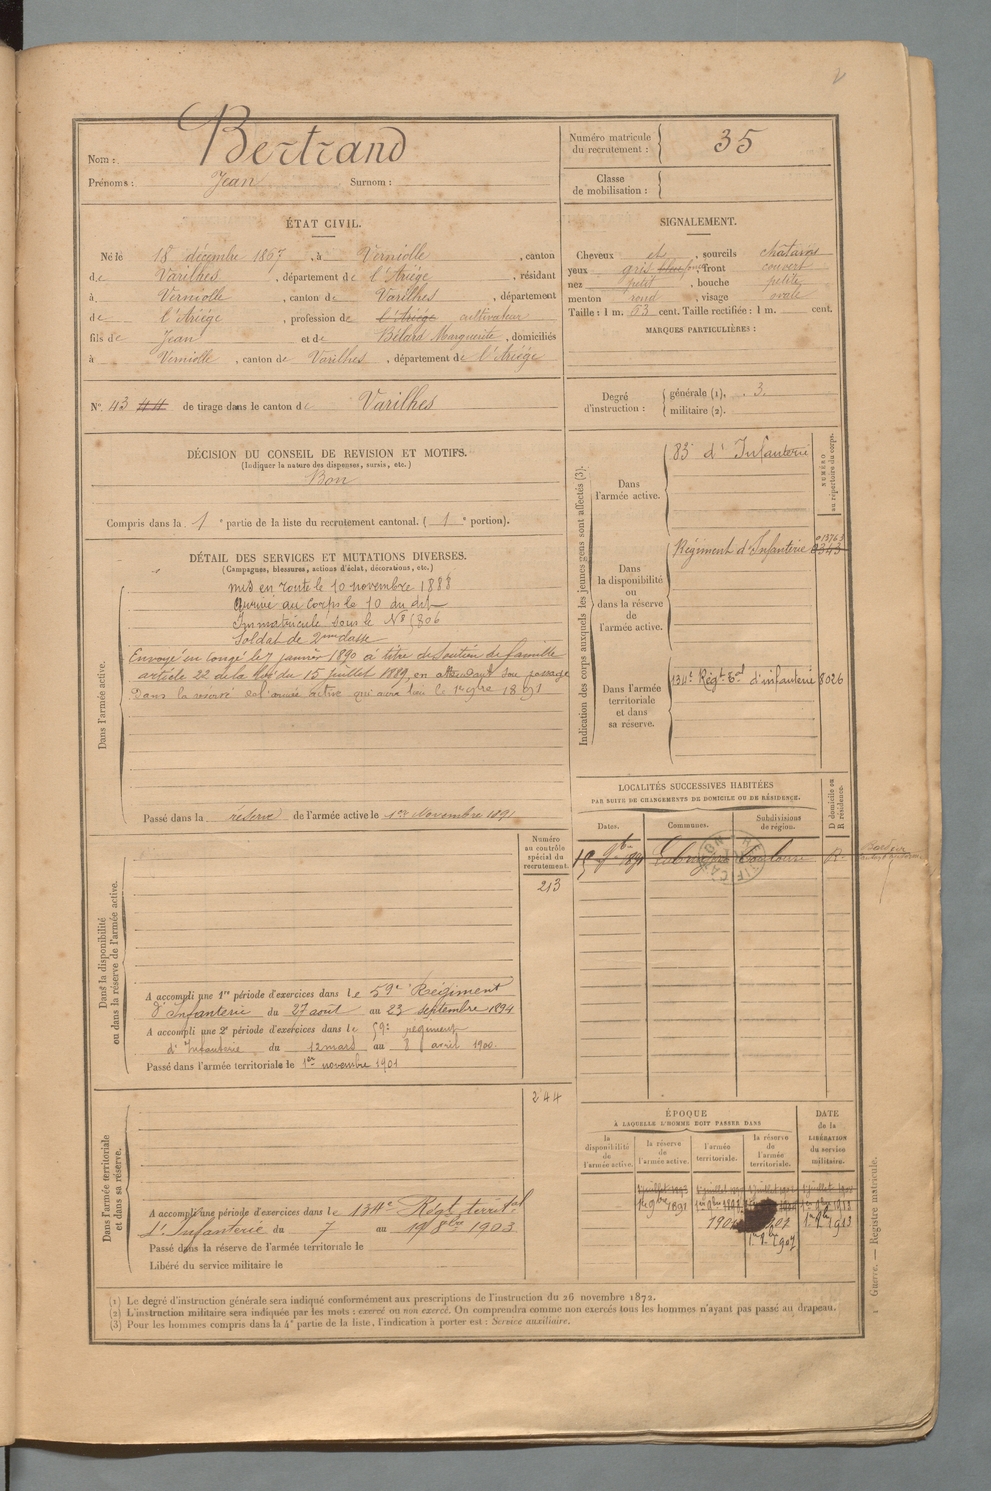 Nom : Bertrand
Prénoms : Jean Surnom :
Numéro matricule du recrutement : 35
Classe de mobilisation :
ÉTAT CIVIL.
Né le 18 décembre 1867, à Verniolle, canton
de Varilhes, département de l'Ariége, résidant
à Verniolle, canton de Varilhes, département
de l'Ariége, profession de l'Ariége cultivateur
fils de Jean et de Bélard Marguerite, domiciliés
à Verniolle, canton de Varilhes, département de l'Ariége
N° 43 44 de tirage dans le canton de Varilhes
SIGNALEMENT.
Cheveux et, sourcils châtains
yeux gris, front couvert
nez petit, bouche petite
menton rond, visage ovale
Taille : 1 m. 63 cent. Taille rectifiée : 1 m. cent.
MARQUES PARTICULIÈRES :
Degré d'instruction : générale (1), 3.
militaire (2).
DÉCISION DU CONSEIL DE REVISION ET MOTIFS.
(Indiquer la nature des dispenses, sursis, etc.)
Bon
Compris dans la 1e partie de la liste du recrutement cantonal. (1e portion).
DÉTAIL DES SERVICES ET MUTATIONS DIVERSES.
(Campagnes, blessures, actions d'éclat, décorations, etc.)
Dans l'armée active.
mis en route le 10 novembre 1888
Arrivé au corps le 10 du dit
Immatriculé sous le N°
Soldat de 2me classe
Envoyé en congé le 7 janvier 1890 à titre de soutien de famille
article 22 de la loi du 15 juillet 1889, en attendant son passage
dans la réserve de l'armée active qui aura lieu le 1er 9bre 1891
Passé dans la réserve de l'armée active le 1er Novembre 1891
Indication des corps auxquels les jeunes gens sont affectés (3).
NUMÉRO au répertoire du corps.
Dans l'armée active.
83e d'Infanterie
Dans la disponibilité ou dans la réserve de l'armée active.
Régiment d'Infanterie
Dans l'armée territoriale et dans sa réserve.
134e Régt Eal d'infanterie 8026
LOCALITÉS SUCCESSIVES HABITÉES
PAR SUITE DE CHANGEMENTS DE DOMICILE OU DE RÉSIDENCE.
Dates. Communes. Subdivisions de région. D domicile ou R résidence.
15 9bre 1891 Toulouse R
Dans la disponibilité ou dans la réserve de l'armée active.
Numéro au contrôle spécial du recrutement.
213
A accompli une 1re période d'exercices dans le 59e Régiment
d'Infanterie du 27 août au 23 septembre 1894
A accompli une 2e période d'exercices dans le 59e régiment
d'Infanterie du 12 mars au 8 avril 1900.
Passé dans l'armée territoriale le 1er novembre 1901
Dans l'armée territoriale et dans sa réserve.
244
A accompli une période d'exercices dans le 134e Régt territal
d'Infanterie du 7 au 19 8bre 1903
Passé dans la réserve de l'armée territoriale le
Libéré du service militaire le
ÉPOQUE
À LAQUELLE L'HOMME DOIT PASSER DANS
la disponibilité de l'armée active. la réserve de l'armée active. l'armée territoriale. la réserve de l'armée territoriale.
DATE de la LIBÉRATION du service militaire.
1er 9bre 1891
1901
1er 9bre 1907
1er 9bre 1913
(1) Le degré d'instruction générale sera indiqué conformément aux prescriptions de l'instruction du 26 novembre 1872.
(2) L'instruction militaire sera indiquée par les mots : exercé ou non exercé. On comprendra comme non exercés tous les hommes n'ayant pas passé au drapeau.
(3) Pour les hommes compris dans la 4e partie de la liste, l'indication à porter est : Service auxiliaire.
Guerre. — Registre matricule.